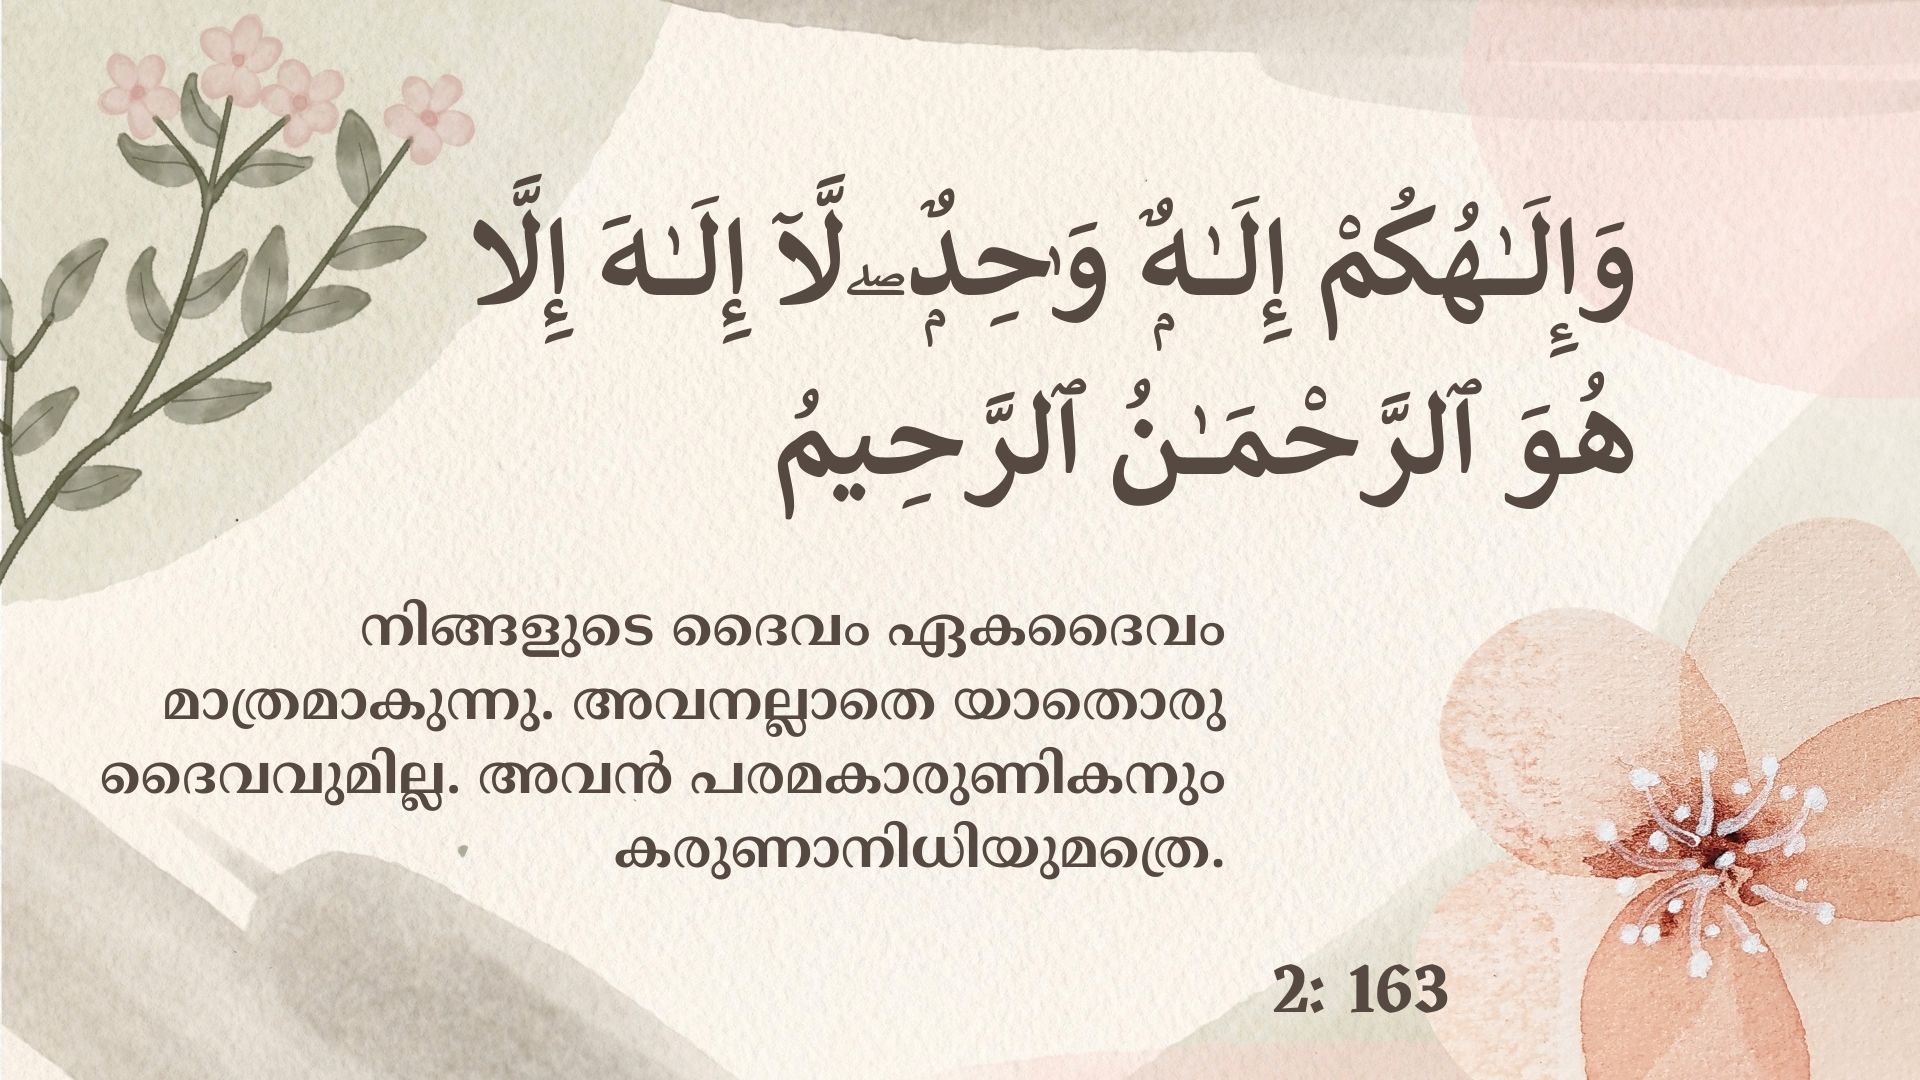 وَإِلَـٰهُكُمْ إِلَـٰهٌۭ وَٰحِدٌۭ ۖ لَّآ إِلَـٰهَ إِلَّا
هُوَ ٱلرَّحْمَـٰنُ ٱلرَّحِيمُ
നിങ്ങളുടെ ദൈവം ഏകദൈവം
മാത്രമാകുന്നു. അവനല്ലാതെ യാതൊരു
ദൈവവുമില്ല. അവൻ പരമകാരുണികനും
കരുണാനിധിയുമത്രെ.
2: 163